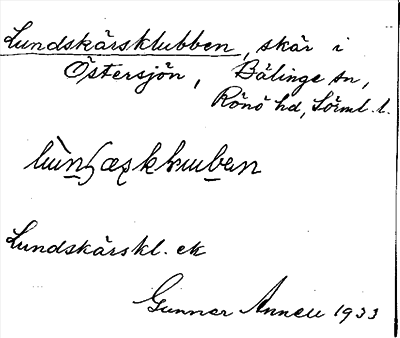 Lundskärsklubben, skär i
Östersjön, Bälinge sn,
Rönö hd, Sörml. l.
Lundskärskl. ek
Gunnar Annell 1933